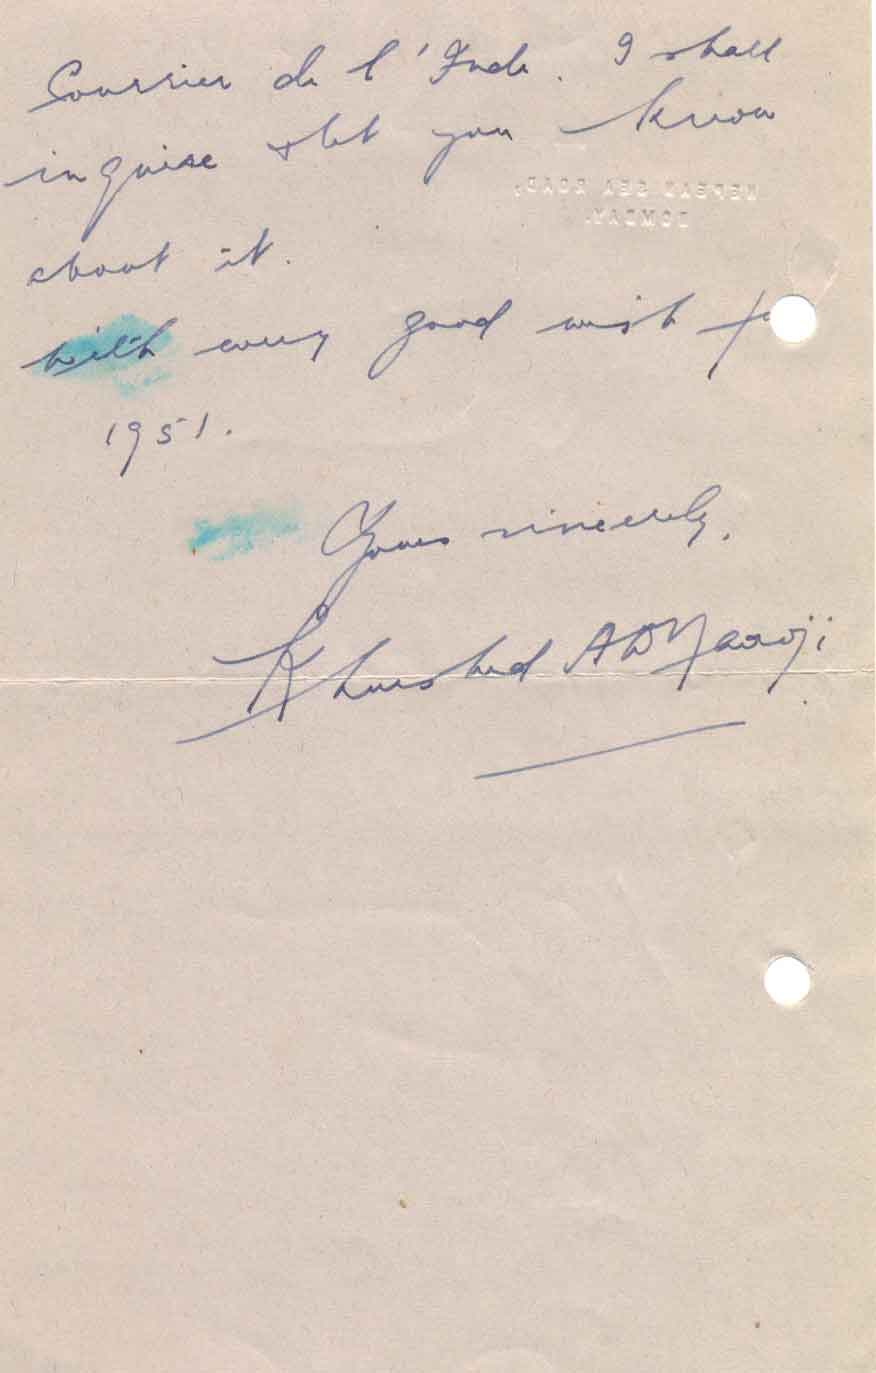 Courrier de l'Inde. I shall
inquire & let you know
NEPEAN SEA ROAD,
BOMBAY.
about it.
with every good wish fo
1951.
Yours sincerely,
Khurshed A D Naoroji